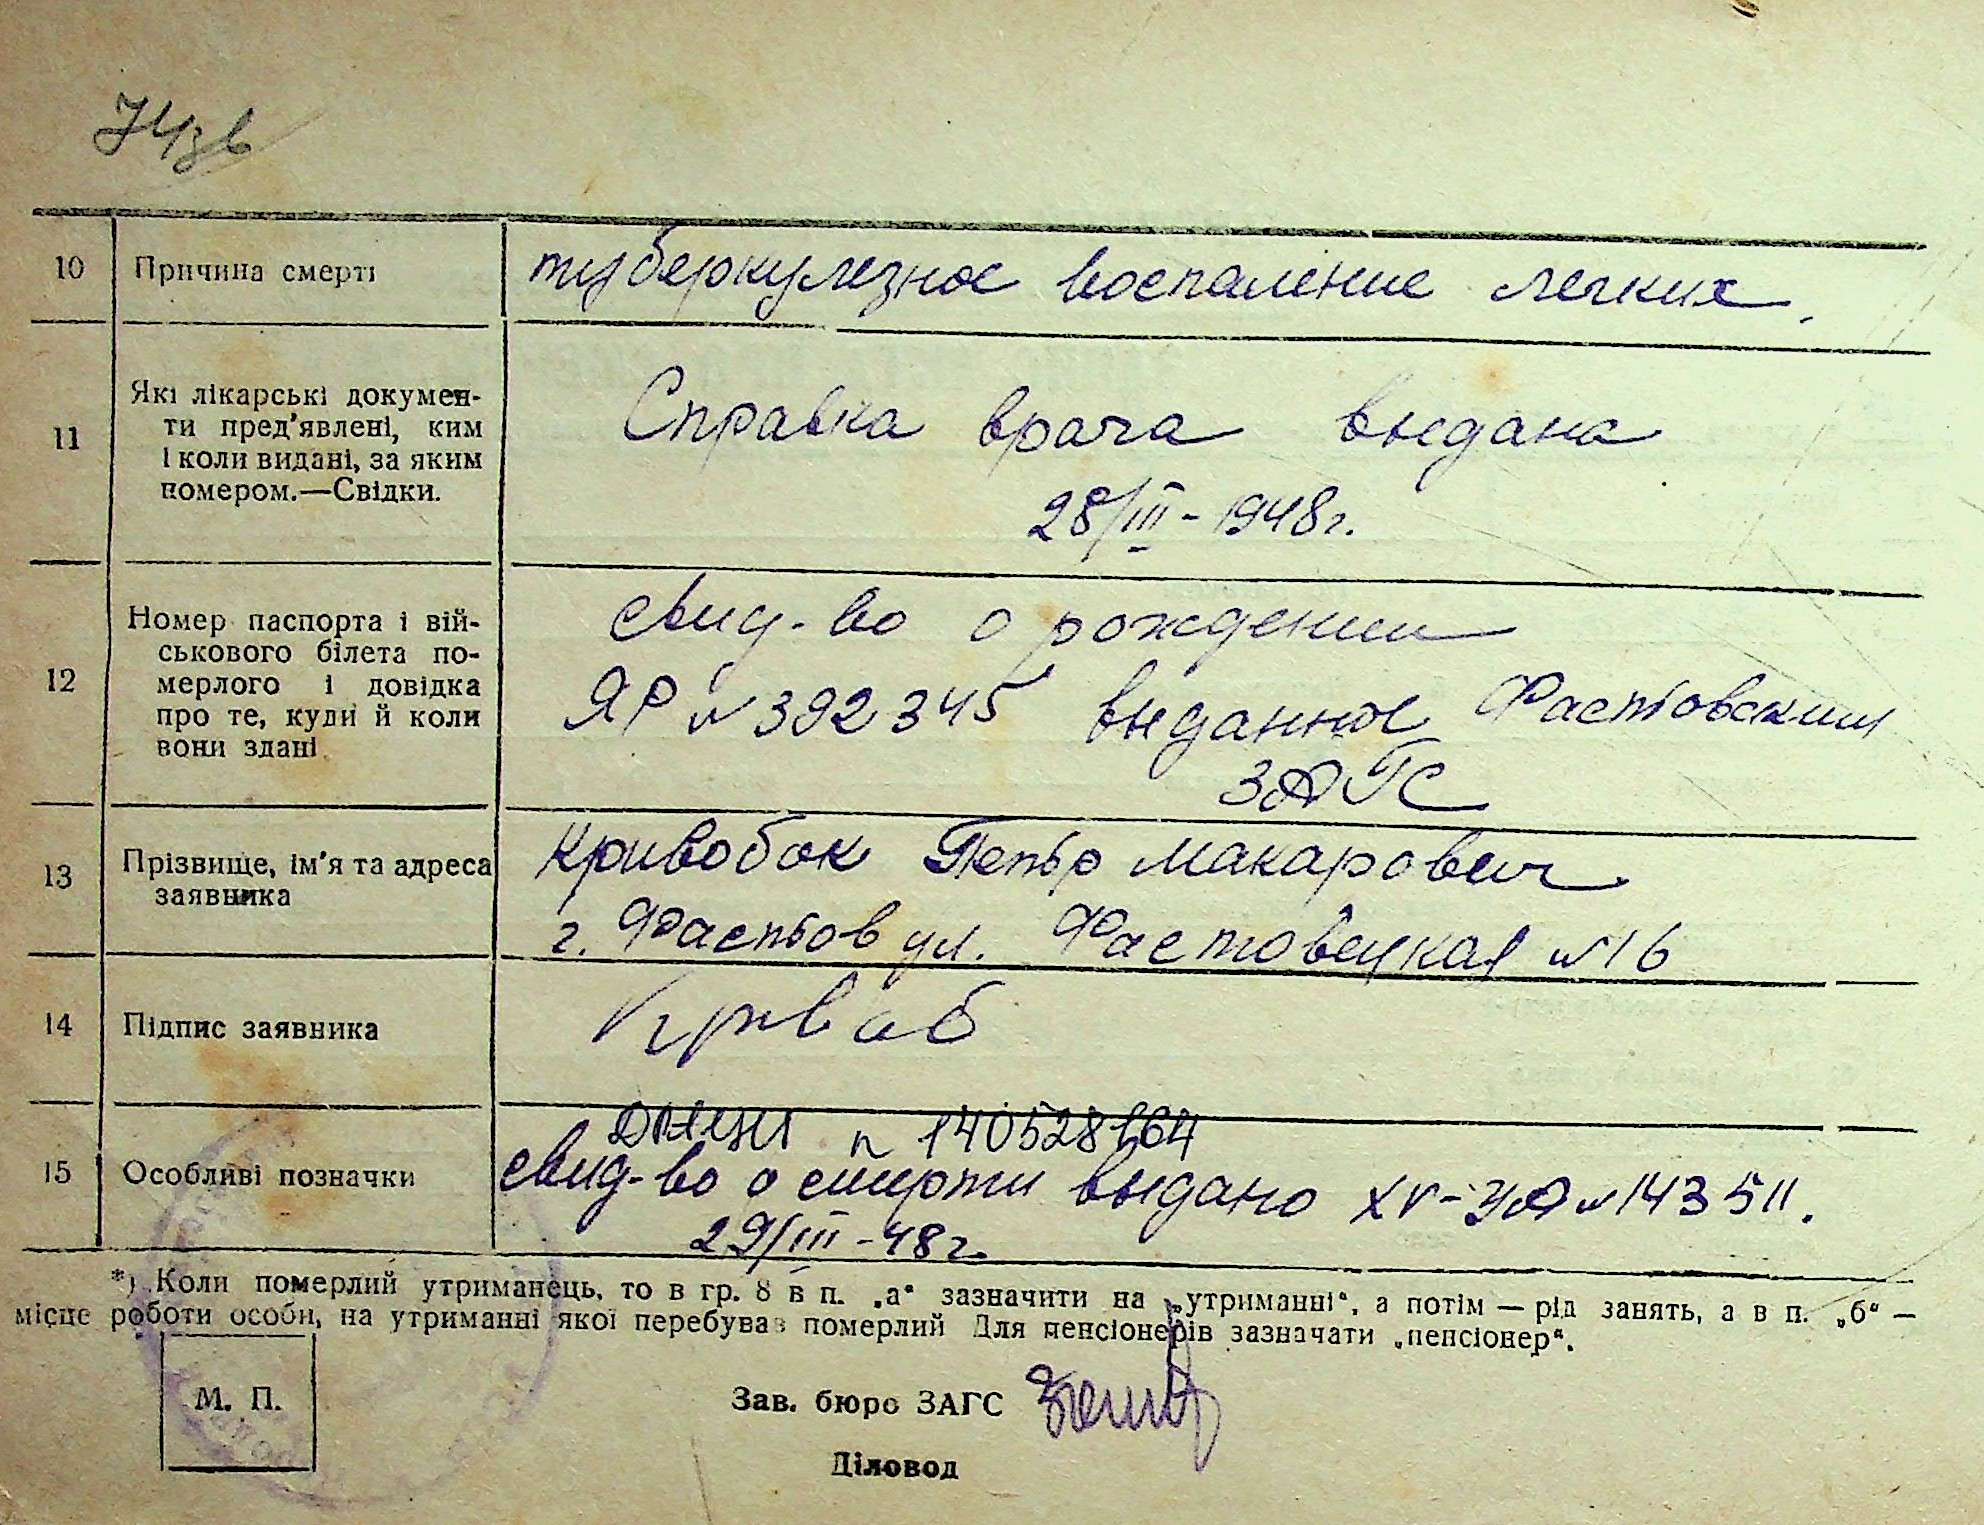 10 Причина смерті туберкулезное воспаление легких.
11 Які лікарські докумен-
ти пред'явлені, ким
і коли видані, за яким
номером.—Свідки.
Справка врача выдана
28/III-1948г.
12 Номер паспорта і вій-
ськового білета по-
мерлого і довідка
про те, куди й коли
вони здані
свид-во о рождении
ЯР № 392345 выданное Фастовским
ЗАГС
13 Прізвище, ім'я та адреса
заявника
Кривобок Петр Макарович
г. Фастов ул. Фастовецкая №16
14 Підпис заявника Кривоб
15 Особливі позначки
n 140528164
свид-во о смерти выдано XV-УА №143511.
29/III-48г.
*) Коли померлий утриманець, то в гр. 8 в п. „а“ зазначити на „утриманні“, а потім — рід занять, а в п. „б“ —
місце роботи особи, на утриманні якої перебував померлий Для пенсіонерів зазначати „пенсіонер“.
М. П.
Зав. бюро ЗАГС
Діловод